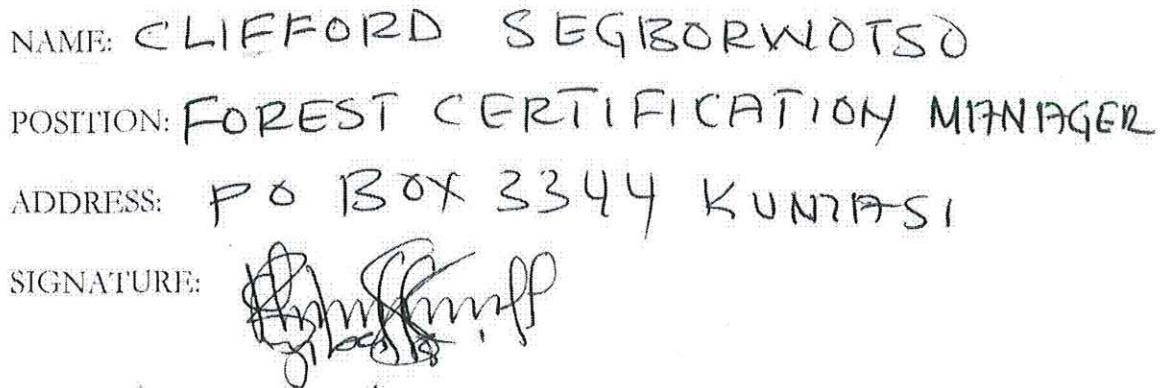 NAME: CLIFFORD SEGBORWOTSO
POSITION: FOREST CERTIFICATION MANAGER
ADDRESS: P O BOX 3344 KUMASI
SIGNATURE: